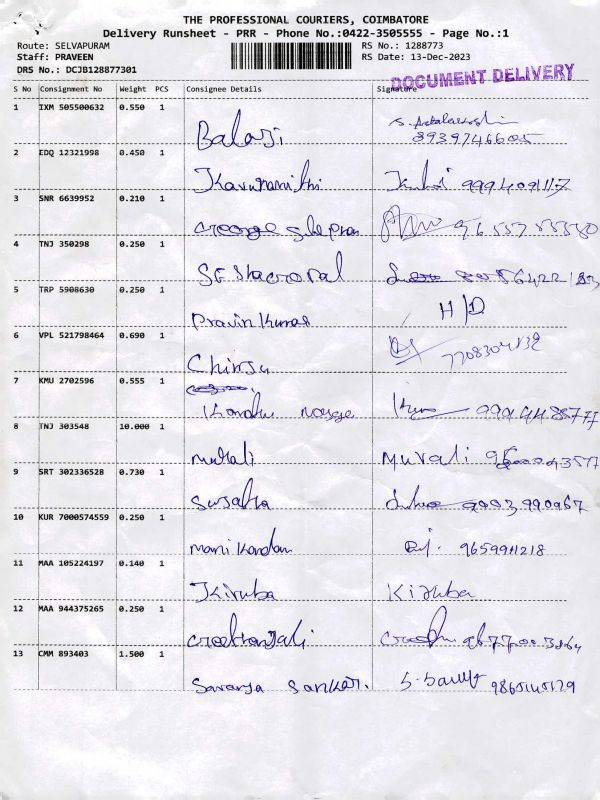 THE PROFESSIONAL COURIERS, COIMBATORE
Delivery Runsheet - PRR - Phone No.:0422-3505555 - Page No.:1
Route: SELVAPURAM RS No.: 1288773
Staff: PRAVEEN RS Date: 13-Dec-2023
DRS No.: DCJB128877301
DOCUMENT DELIVERY
S No Consignment No Weight PCS Consignee Details Signature
1 IXM 505500632 0.550 1
Balaji 8939746605
2 EDQ 12321998 0.450 1
Karunanithi 9994091117
3 SNR 6639952 0.210 1
George
4 TNJ 350298 0.250 1
5 TRP 5908630 0.250 1
Pravin Kumar H/D
6 VPL 521798464 0.690 1
Chinju 7708304132
7 KMU 2702596 0.555 1
8 TNJ 303548 10.000 1
Murali Murali
9 SRT 302336528 0.730 1
Sujatha 9003990967
10 KUR 7000574559 0.250 1
Mani Kandan 9659911218
11 MAA 105224197 0.140 1
Kiruba Kiruba
12 MAA 944375265 0.250 1
Geethanjali
13 CMM 893403 1.500 1
Saranya Sankar.